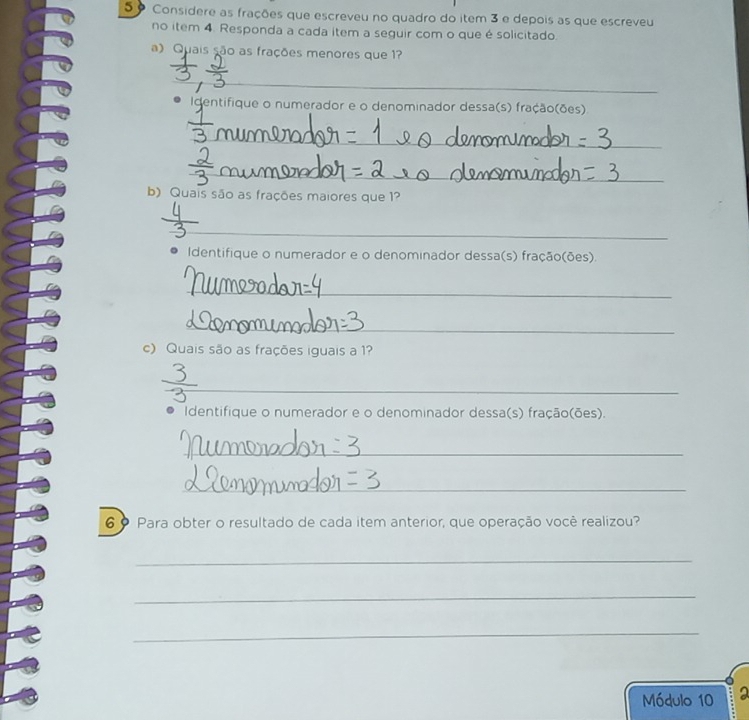 5 Considere as frações que escreveu no quadro do item 3 e depois as que escreveu
no item 4. Responda a cada item a seguir com o que é solicitado.
a) Quais são as frações menores que 1?
1/3, 2/3
• Identifique o numerador e o denominador dessa(s) fração(ões).
1/3 numerador = 1 e o denominador = 3
2/3 numerador = 2 e o denominador = 3
b) Quais são as frações maiores que 1?
4/3
• Identifique o numerador e o denominador dessa(s) fração(ões).
Numerador=4
Denominador=3
c) Quais são as frações iguais a 1?
3/3
• Identifique o numerador e o denominador dessa(s) fração(ões).
Numerador=3
Denominador=3
6 Para obter o resultado de cada item anterior, que operação você realizou?
Módulo 10
2